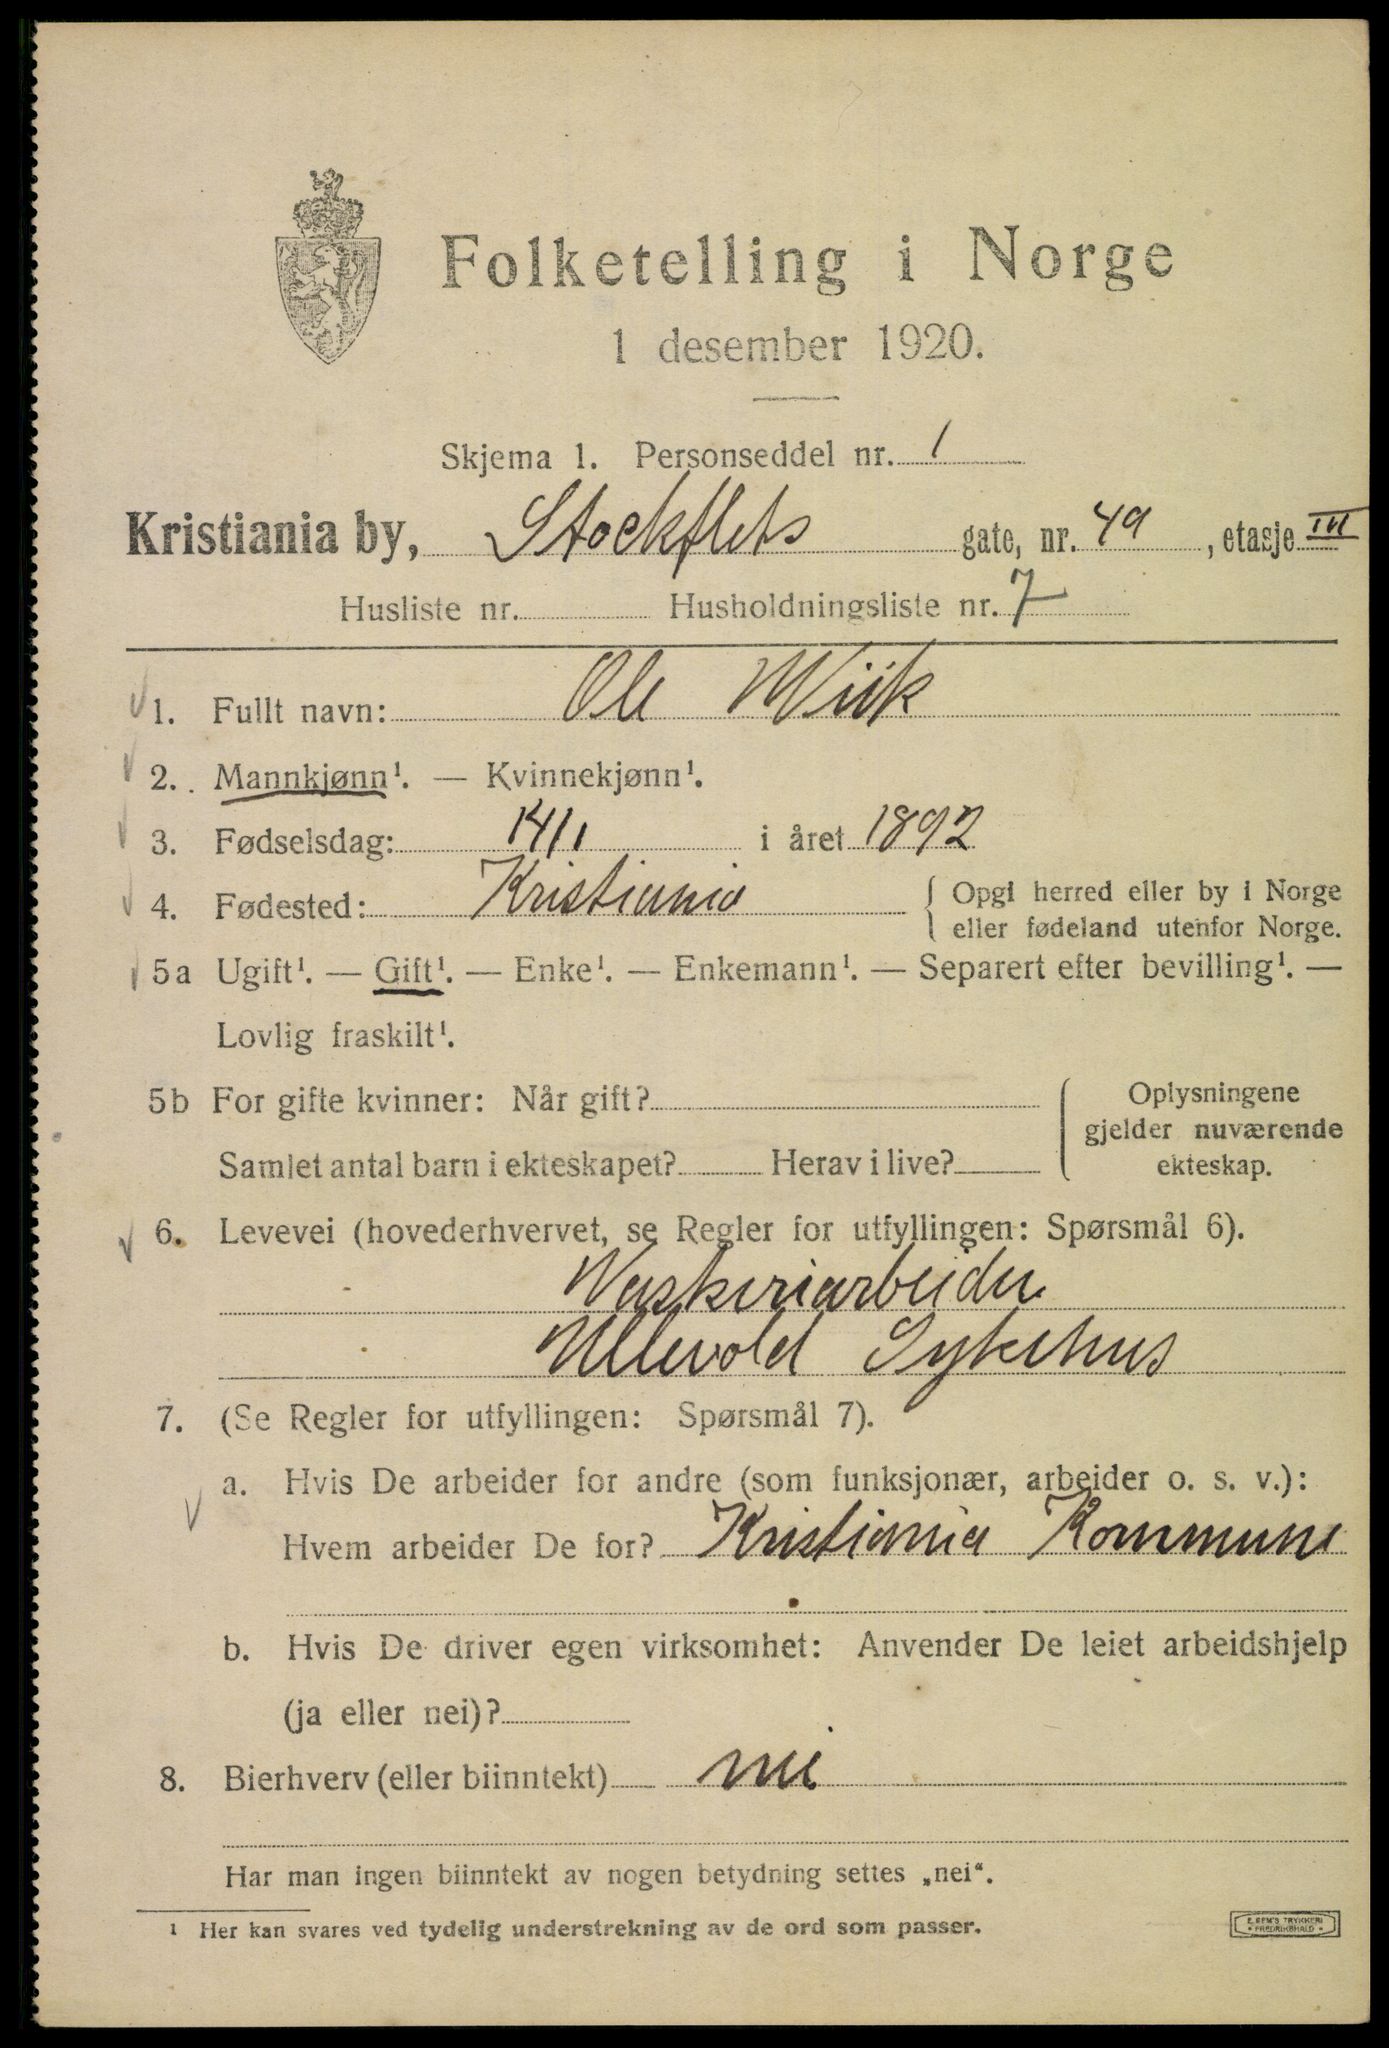 Folketelling i Norge
1 desember 1920.
Skjema 1. Personseddel nr. 1
Kristiania by, Stockflets gate, nr. 49, etasje III
Husliste nr. Husholdningsliste nr. 7
1. Fullt navn: Ole Wiik
2. Mannkjønn¹. — Kvinnekjønn¹.
3. Fødselsdag: 14/1 i året 1892
4. Fødested: Kristiania { Opgi herred eller by i Norge
eller fødeland utenfor Norge.
5a Ugift¹. — Gift¹. — Enke¹. — Enkemann¹. — Separert efter bevilling¹. —
Lovlig fraskilt¹.
5b For gifte kvinner: Når gift? Oplysningene
gjelder nuværende
Samlet antal barn i ekteskapet? Herav i live? ekteskap.
6. Levevei (hovederhvervet, se Regler for utfyllingen: Spørsmål 6).
Vaskeriarbeider
Ullevold Sykehus
7. (Se Regler for utfyllingen: Spørsmål 7).
a. Hvis De arbeider for andre (som funksjonær, arbeider o. s. v.):
Hvem arbeider De for? Kristiania Kommune
b. Hvis De driver egen virksomhet: Anvender De leiet arbeidshjelp
(ja eller nei)?
8. Bierhverv (eller biinntekt) nei
Har man ingen biinntekt av nogen betydning settes „nei“.
¹ Her kan svares ved tydelig understrekning av de ord som passer.
E. SEM'S TRYKKERI
• FREDRIKSHALD •